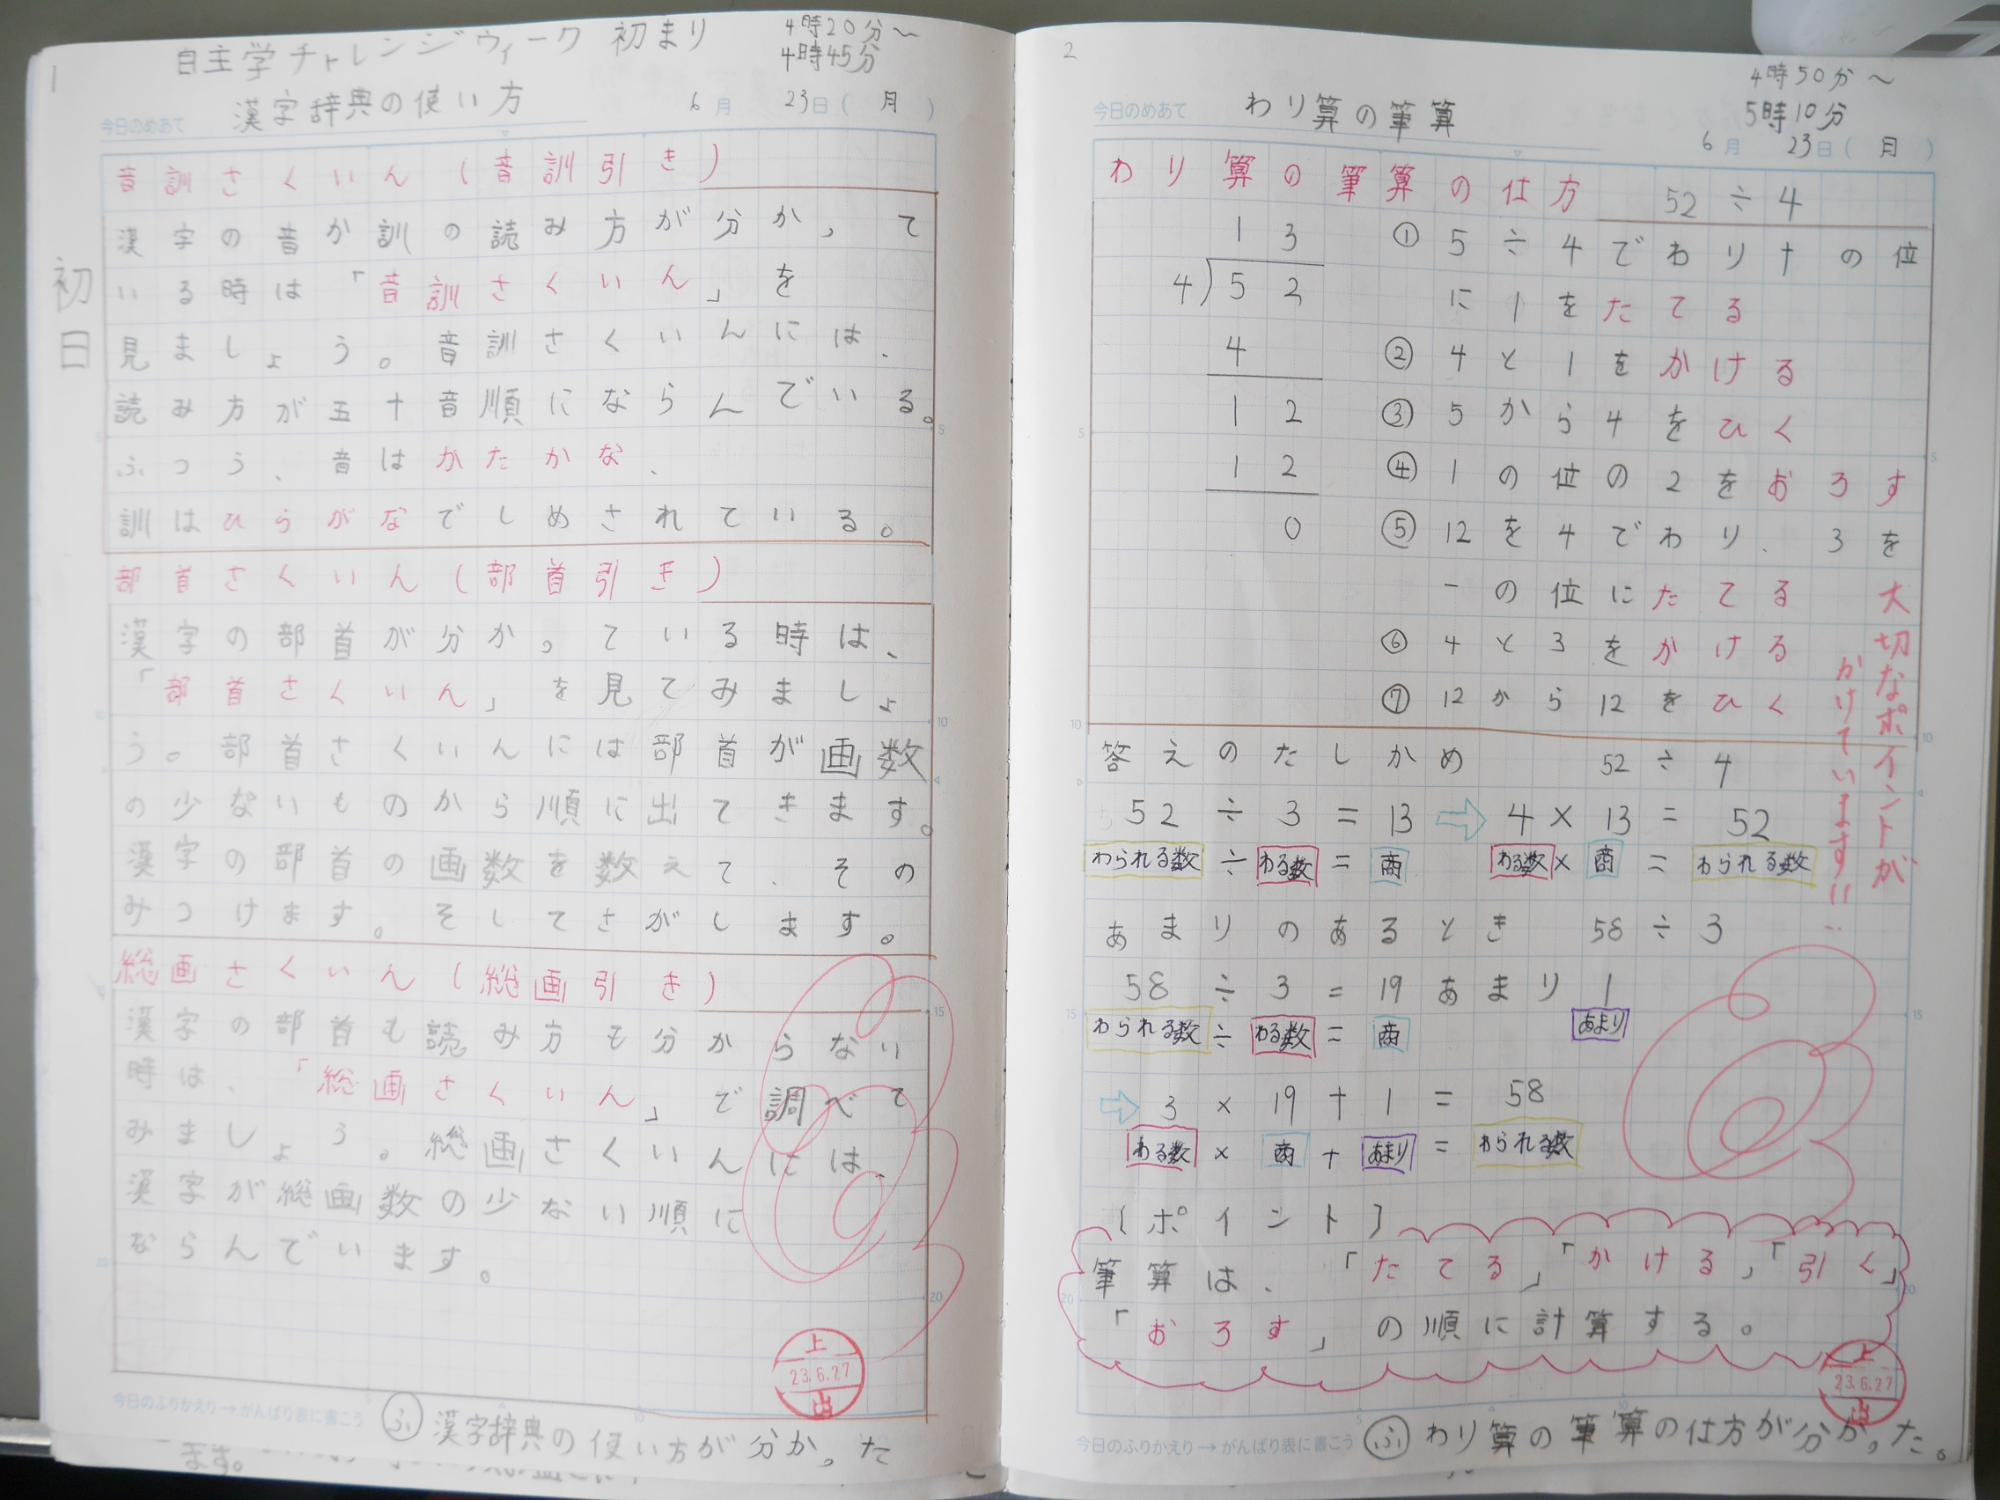 1
自主学チャレンジウィーク 初まり
4時20分〜
4時45分
今日のめあて 漢字辞典の使い方 6月 23日(月)
初日
音訓さくいん(音訓引き)
漢字の音か訓の読み方が分かって
いる時は「音訓さくいん」を
見ましょう。音訓さくいんには、
読み方が五十音順にならんでいる。
ふつう、音はかたかな、
訓はひらがなでしめされている。
部首さくいん(部首引き)
漢字の部首が分かっている時は、
「部首さくいん」を見てみましょ
う。部首さくいんには部首が画数
の少ないものから順に出てきます。
漢字の部首の画数を数えて、その
みつけます。そしてさがします。
総画さくいん(総画引き)
漢字の部首も読み方も分からない
時は、「総画さくいん」で調べて
みましょう。総画さくいんには、
漢字が総画数の少ない順に
ならんでいます。
上
23.6.27
今日のふりかえり→がんばり表に書こう ふ 漢字辞典の使い方が分かった
ます。
2
4時50分〜
5時10分
今日のめあて わり算の筆算
6月 23日(月)
わり算の筆算の仕方 52÷4
13
4)52
4
12
12
0
①5÷4でわり十の位
に1をたてる
②4と1をかける
③5から4をひく
④1の位の2をおろす
⑤12を4でわり、3を
一の位にたてる
⑥4と3をかける
⑦12から12をひく
大切なポイントが
かけています!!
答えのたしかめ 52÷4
52÷3=13 ⇨ 4×13=52
わられる数÷わる数=商 わる数×商=わられる数
あまりのあるとき 58÷3
58÷3=19あまり1
わられる数÷わる数=商 あまり
⇨ 3×19+1=58
わる数×商+あまり=わられる数
(ポイント)
筆算は、「たてる」「かける」「引く」
「おろす」の順に計算する。
上
23.6.27
今日のふりかえり→がんばり表に書こう ふ わり算の筆算の仕方が分かった。